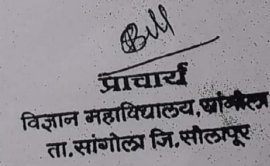 प्राचार्य
विज्ञान महाविद्यालय, सांगोला
ता. सांगोला जि. सोलापूर